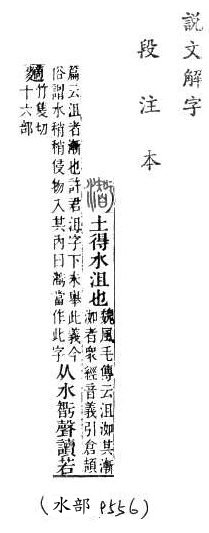 說文解字
段注本
土得水沮也
魏風毛傳云沮洳其漸
洳者衆經音義引倉頡
篇云沮者漸也許君沮字下未舉此義今
俗謂水稍稍侵物入其內曰當作此字
从水聲讀若
竹隻切
十六部
(水部 P556)